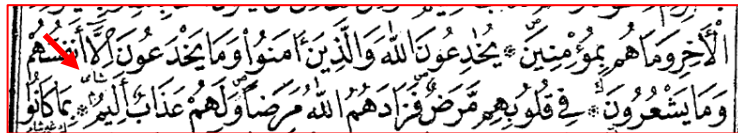 الْأَخِرِ وَمَا هُم بِمُؤْمِنِينَ ۞ يُخَٰدِعُونَ اللَّهَ وَالَّذِينَ ءَامَنُوا۟ وَمَا يَخْدَعُونَ إِلَّا أَنفُسَهُمْ
وَمَا يَشْعُرُونَ ۞ فِي قُلُوبِهِم مَّرَضٌ فَزَادَهُمُ اللَّهُ مَرَضًا وَلَهُمْ عَذَابٌ أَلِيمٌ ۞ بِمَا كَانُوا۟